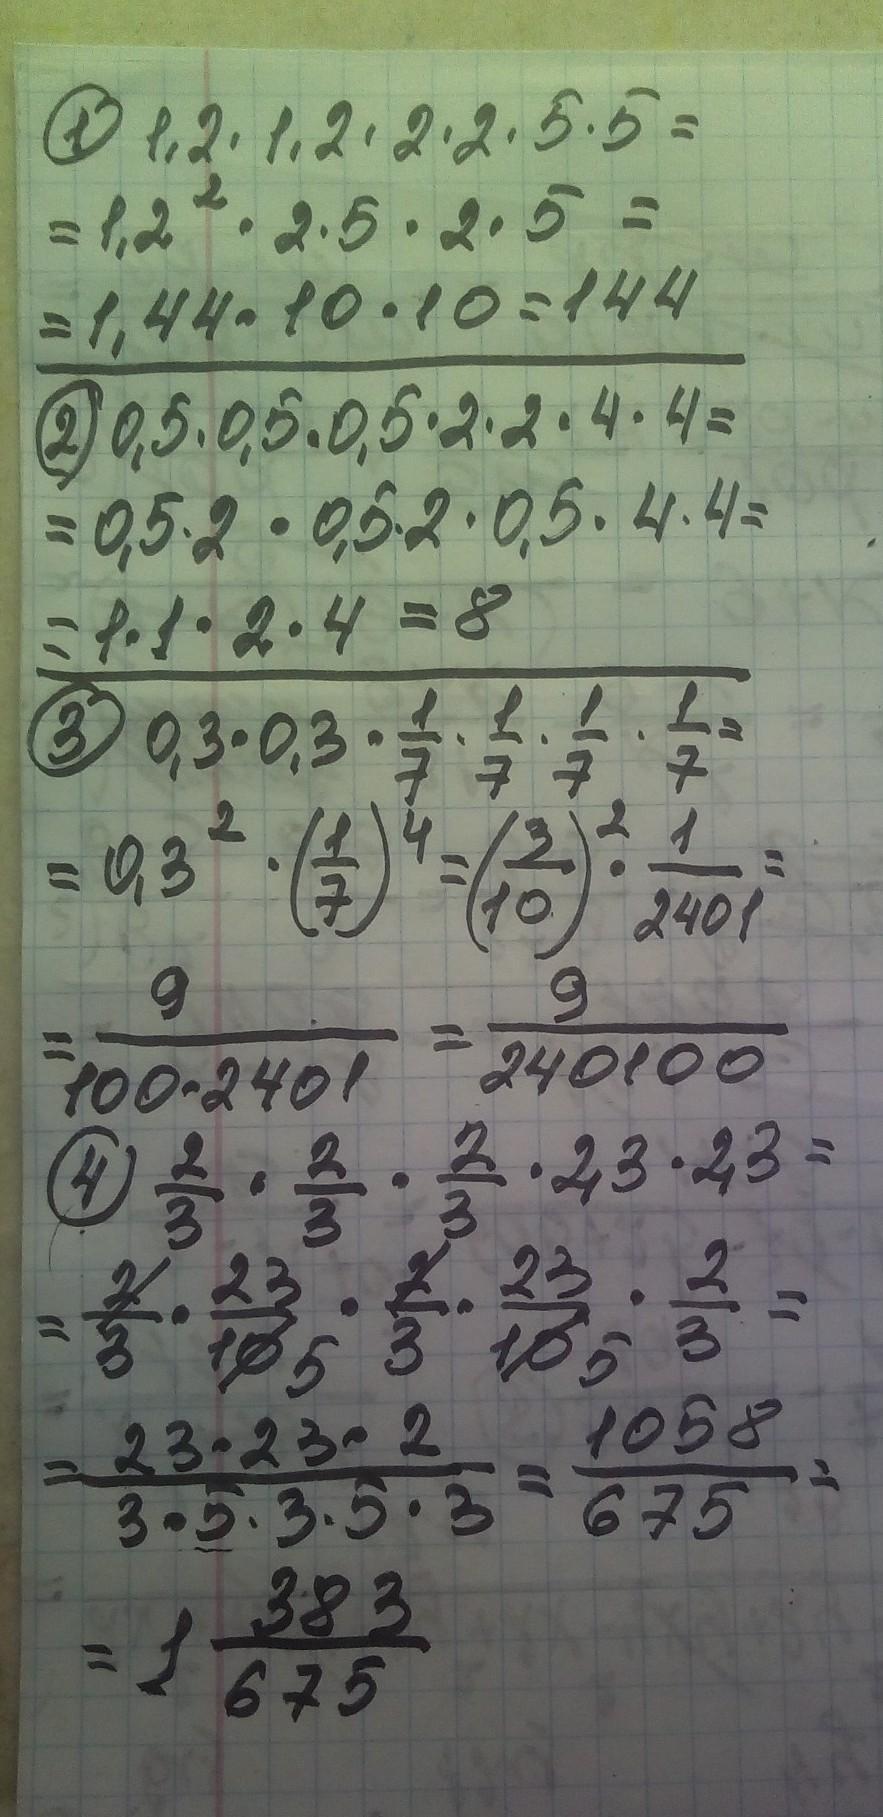 ① 1,2 · 1,2 · 2 · 2 · 5 · 5 =
= 1,2² · 2 · 5 · 2 · 5 =
= 1,44 · 10 · 10 = 144
② 0,5 · 0,5 · 0,5 · 2 · 2 · 4 · 4 =
= 0,5 · 2 · 0,5 · 2 · 0,5 · 4 · 4 =
= 1 · 1 · 2 · 4 = 8
③ 0,3 · 0,3 · 1/7 · 1/7 · 1/7 · 1/7 =
= 0,3² · (1/7)⁴ = (3/10)² · 1/2401 =
= 9/(100 · 2401) = 9/240100
④ 2/3 · 2/3 · 2/3 · 2,3 · 2,3 =
= 2/3 · 23/10 5 · 2/3 · 23/10 5 · 2/3 =
= (23 · 23 · 2)/(3 · 5 · 3 · 5 · 3) = 1058/675 =
= 1 383/675